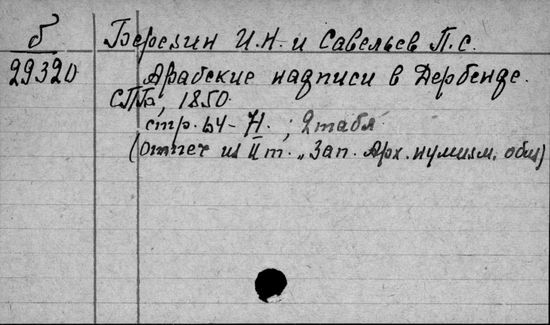 б
29320
Березин И.Н. и Савельев П.С.
Арабские надписи в Дербенде.
СПБ, 1850.
стр. 64-71.; 2 табл
(Оттеч из II т. „Зап. Арх. нумизм. общ)